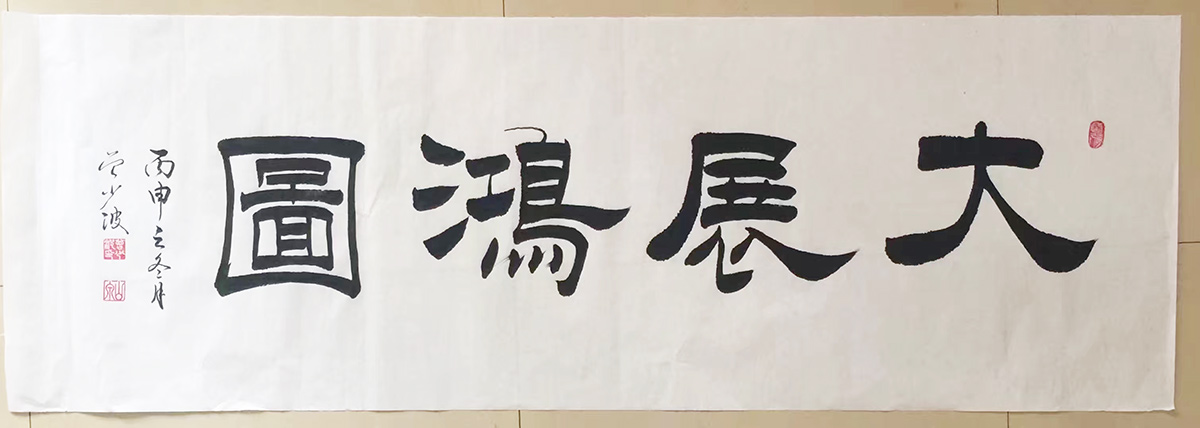 大展鴻圖
丙申之冬月
少波